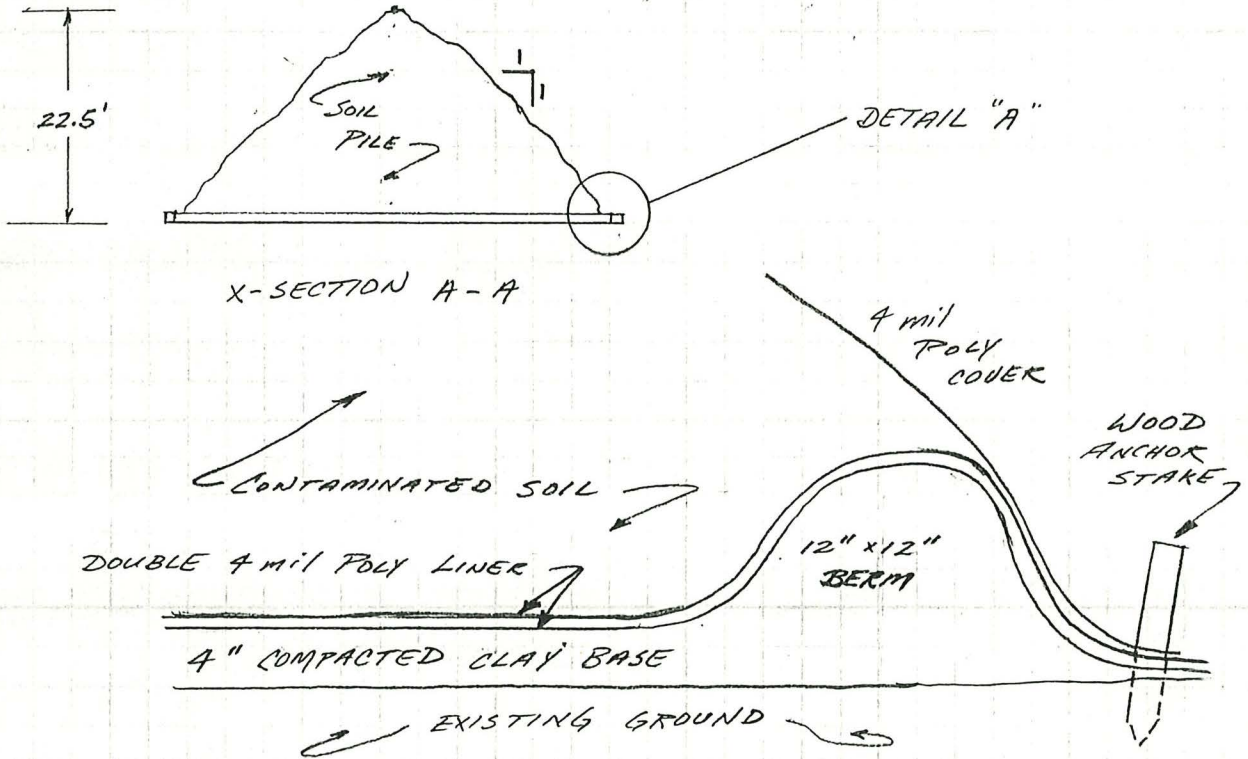 22.5'
SOIL
PILE
1
1
DETAIL "A"
X-SECTION A-A
4 mil
POLY
COVER
WOOD
ANCHOR
STAKE
CONTAMINATED SOIL
DOUBLE 4 mil POLY LINER
12" x 12"
BERM
4" COMPACTED CLAY BASE
EXISTING GROUND